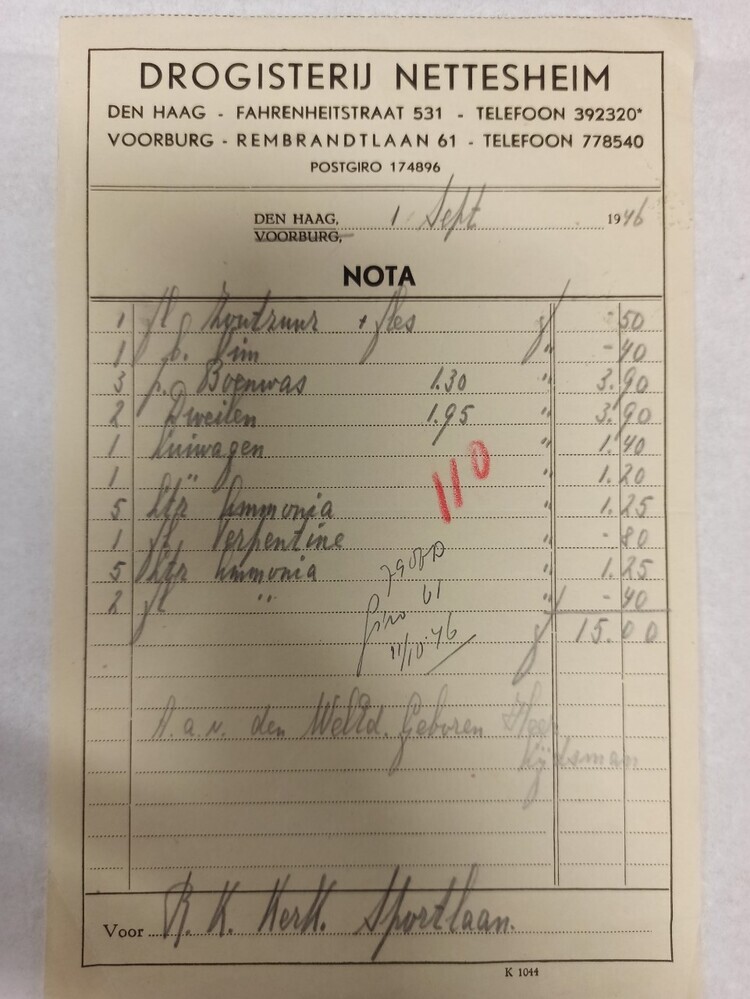 DROGISTERIJ NETTESHEIM
DEN HAAG - FAHRENHEITSTRAAT 531 - TELEFOON 392320*
VOORBURG - REMBRANDTLAAN 61 - TELEFOON 778540
POSTGIRO 174896
DEN HAAG, 1 Sept 1946
VOORBURG,
NOTA
1 fl Zoutzuur + fles f -50
1 p. Vim " -40
3 p. Boenwas 1.30 " 3.90
2 Dweilen 1.95 " 3.90
1 Luiwagen " 1.40
1 " " 1.20
110
5 Ltr Ammonia " 1.25
1 fl. Terpentine " -80
5 Ltr Ammonia " 1.25
2 fl " " -40
Giro 61
11/10-46
f 15.00
A.a.v. den Geboren Heer
Voor R. K. Kerk. Sportlaan.
K 1044